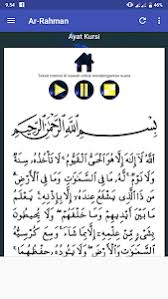 9.54
Ar-Rahman
Ayat Kursi
Tekan tombol di bawah untuk mendengarkan suara
بِسْمِ اللَّهِ الرَّحْمَٰنِ الرَّحِيمِ
اَللَّهُ لَا إِلَهَ إِلَّا هُوَ الْحَيُّ الْقَيُّوْمُ لَا تَأْخُذُهُ سِنَةٌ
وَلَا نَوْمٌ لَهُ مَا فِى السَّمَوَاتِ وَمَا فِى الْأَرْضِ
مَنْ ذَا الَّذِى يَشْفَعُ عِنْدَهُ إِلَّا بِإِذْنِهِ يَعْلَمُ
مَا بَيْنَ أَيْدِيْهِمْ وَمَا خَلْفَهُمْ وَلَا يُحِيْطُوْنَ
بِشَيْءٍ مِّنْ عِلْمِهِ إِلَّا بِمَا شَاءَ وَسِعَ كُرْسِيُّهُ
السَّمَوَاتِ وَالْأَرْضَ وَلَا يَؤُدُهُ حِفْظُهُمَا